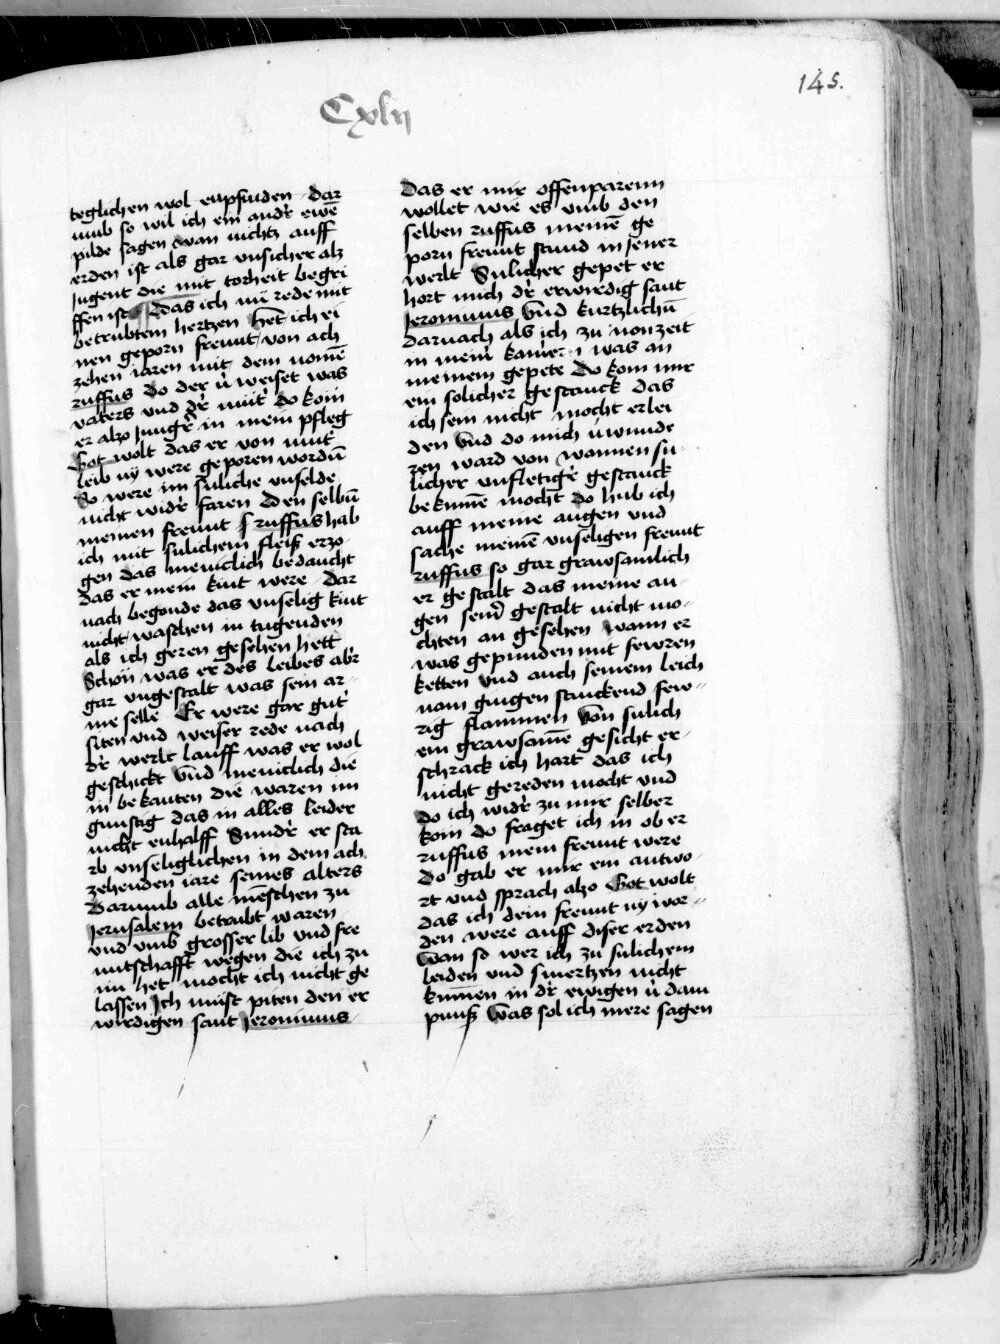 145.
Cxlij
teglichen wol enpfinden Dar
umb so wil ich ein andr̄ ewē
pilde sagen wan nichtz auff
erden ist als gar unsicher alz
Jugent die mit torheit begri
ffen ist Das ich nu rede mit
betrubtem hertzen Het ich ei
nen geporn freunt von ach
zehen iaren mit dem nomē
ruffus Do der ū weiset was
vaters und dr̄ mut̄ Do kom
er alzo Jungr̄ in mein pfleg
Got wolt das er von mut̄
leib ny were geporen wordū
So were im suliche unselde
nicht widr̄ faren Den selbū
meinen freunt ruffus hab
ich mit sulichem fleiß erzo
gen das meniclich bedaucht
das er mein kint were Dar
nach begonde das unselig kint
nicht waschen in tugenden
als ich geren gesehen hett
Schon was er des leibes abr̄
gar ungestalt was sein ar-
me selle Er were gar gut̄
siten und weiser rede nach
dr̄ werlt lauff was er wol
geschickt Und meniclich die
in bekanten die waren im
gunstig das in alles leider
nicht enhalff Sundr̄ er sta
rb unseliglichen in dem ach
zehenden iare seines alters
Darumb alle mēschen zu
Jerusalem betrubt waren
und umb grosser lib und fre
untschafft wegen die ich zu
im het mocht ich nicht ge
lassen Ich must piten den er
wirdigen sant Jeronimus
Das er mir offenparenn
wollet wie es umb den
selben ruffus meinē ge
porn freunt stund in Jener
werlt Sulicher gepet er
hort mich dr̄ erwirdig sant
Jeronimus Und kurtzlichū
darnach als ich zu nonzeit
in meinr̄ kamer was an
meinem gepete Do kom mir
ein solicher gestanck das
ich sein nicht mocht erlei
den Und do mich ūwunde
zen ward von wonnen su-
licher unfletigr̄ gestanck
bekumē mocht do hub ich
auff meine augen und
sache meinē unseligen freunt
ruffus so gar grawsamlich
er gestalt das meine au-
gen seinr̄ gestalt nicht mo-
chten an gesehen Wann er
was gepunden mit fewren
ketten Und auch seinem leich
nam gingen stinckend few-
rig flammen Von sulich
em grawsamē gesicht er-
schrack ich hart das ich
nicht gereden mocht und
do ich widr̄ zu mir selber
kom do fraget ich in ob er
ruffus mein freunt were
Do gab er mir ein antwo-
rt und sprach alzo Got wolt
das ich dein freunt ny wor-
den were auff diser erden
Wan so wer ich zu sulichem
leiden und smertzen nicht
kumen in dr̄ ewigen ū dam
pnuß Was sol ich mere sagen